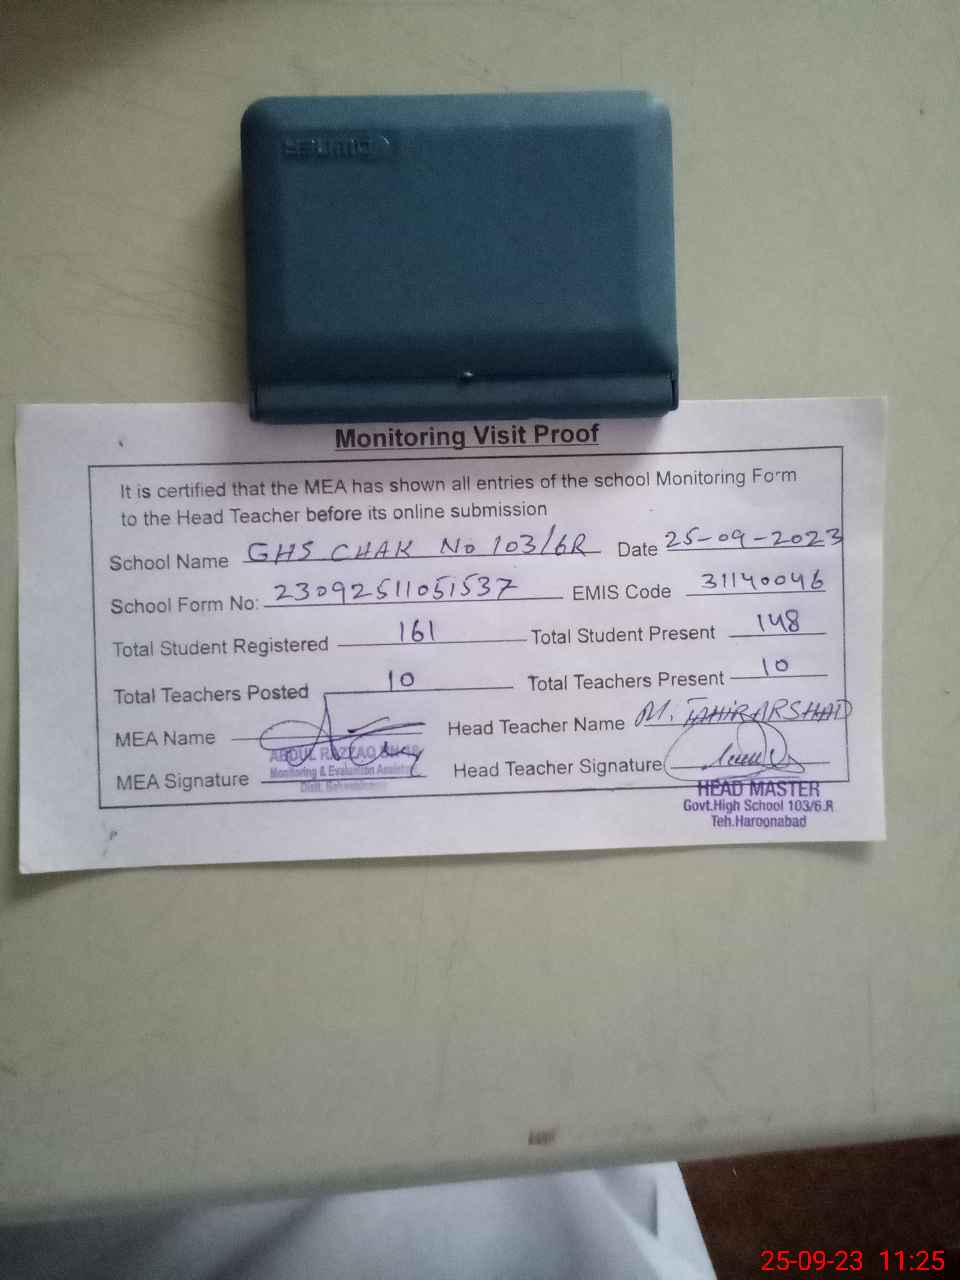 Monitoring Visit Proof
It is certified that the MEA has shown all entries of the school Monitoring Form
to the Head Teacher before its online submission
School Name GHS CHAK No 103/6R Date 25-09-2023
School Form No: 23092511051537 EMIS Code 31140046
Total Student Registered 161 Total Student Present 148
Total Teachers Posted 10 Total Teachers Present 10
MEA Name Head Teacher Name M. TAHIR ARSHAD
ABDUL RAZZAQ
MEA Signature Monitoring & Evaluation Assistant Head Teacher Signature
Distt.
HEAD MASTER
Govt.High School 103/6.R
Teh.Haroonabad
25-09-23 11:25